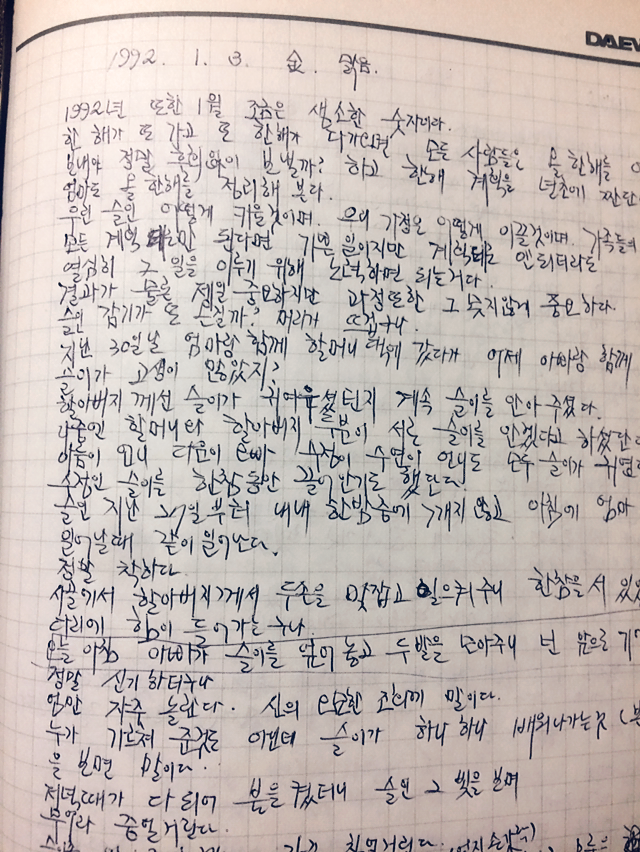 DAEW
1992. 1. 3. 金. 맑음.
1992년 또한 1월 조금은 생소한 숫자이다.
한 해가 또 가고 또 한해가 다가오면 모든 사람들은 올 한해를
보내야 정말 후회없이 보낼까? 하고 한해 계획을 년초에
엄마도 올 한해를 정리해 본다.
우린 슬인 어떻게 키울것이며. 우리 가정은 어떻게 이끌것이며. 가족들의
모든 계획 만 된다면 기쁜 일이지만 계획대로 안되더라도
열심히 그 일을 이루기 위해 노력하면 되는거다.
결과가 물론 제일 중요하지만 과정또한 그 못지않게 중요하다.
슬인 감기가 또 온걸까? 머리가 뜨겁구나.
지난 30일날 엄마랑 함께 할머니 댁에 갔다가 어제 아빠랑 함께
슬이가 고생이 많았지?
할아버지 께선 슬이가 귀여우셨던지 계속 슬이를 안아 주셨다.
나중엔 할머니와 할아버지 두분이 서로 슬이를 안겠다고 하셨단다
아름이 언니 다운이 오빠 수정이 수연이 언니도 모두 슬이가 귀엽
수정인 슬이를 한참 동안 끌어안기도 했단다.
슬인 지난 27일부터 내내 한밤중에 깨지 않고 아침에 엄마
일어날때 같이 일어난다.
정말 착하다.
시골에서 할아버지께서 두손을 맞잡고 일으켜주니 한참을 서 있었
다리에 힘이 들어가는구나.
오늘 아침 아빠가 슬이를 엎어놓고 두발을 모아주니 넌 앞으로 기
정말 신기하더구나
엄만 자주 놀란다. 신의 오묘한 진리에 말이다.
누가 가르쳐 준것도 아닌데 슬이가 하나 하나 배워나가는것
을 보면 말이다.
저녁때가 다 되어 불을 켰더니 슬인 그 빛을 보며
무어라 중얼거린다.